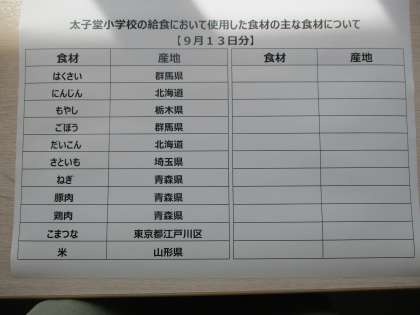 太子堂小学校の給食において使用した食材の主な食材について
【９月１３日分】
食材 産地 食材 産地
はくさい 群馬県
にんじん 北海道
もやし 栃木県
ごぼう 群馬県
だいこん 北海道
さといも 埼玉県
ねぎ 青森県
豚肉 青森県
鶏肉 青森県
こまつな 東京都江戸川区
米 山形県